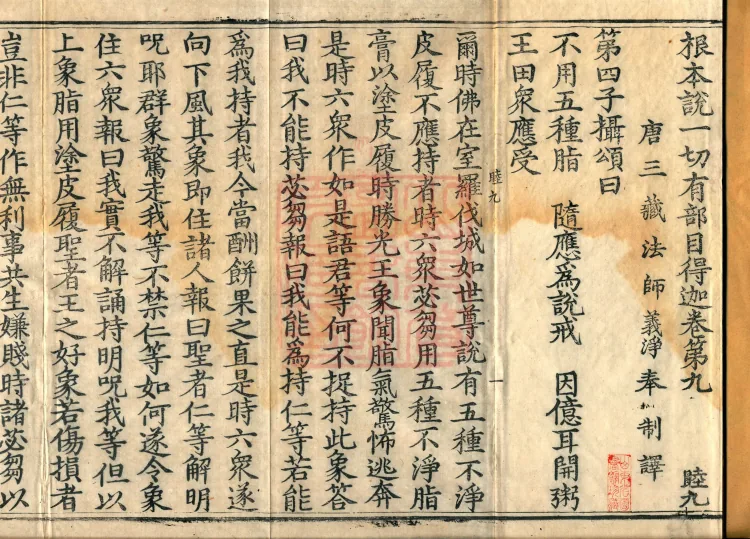 根本說一切有部目得迦卷第九 睦九
唐三藏法師義淨奉 制譯
第四子攝頌曰
不用五種脂 隨應為說戒 因億耳開粥
王田衆應受
爾時佛在室羅伐城如世尊說有五種不淨
皮履不應持者時六衆苾芻用五種不淨脂
膏以塗皮履時勝光王象聞脂氣驚怖逃奔
是時六衆作如是語君等何不捉持此象答
曰我不能持苾芻報曰我能為持仁等若能
為我持者我今當酬餅果之直是時六衆遂
向下風其象即住諸人報曰聖者仁等解明
呪耶群象驚走我等不禁仁等如何遂令象
住六衆報曰我實不解誦持明呪我等但以
上象脂用塗皮履聖者王之好象若傷損者
豈非仁等作無利事共生嫌賤時諸苾芻以
睦九
一